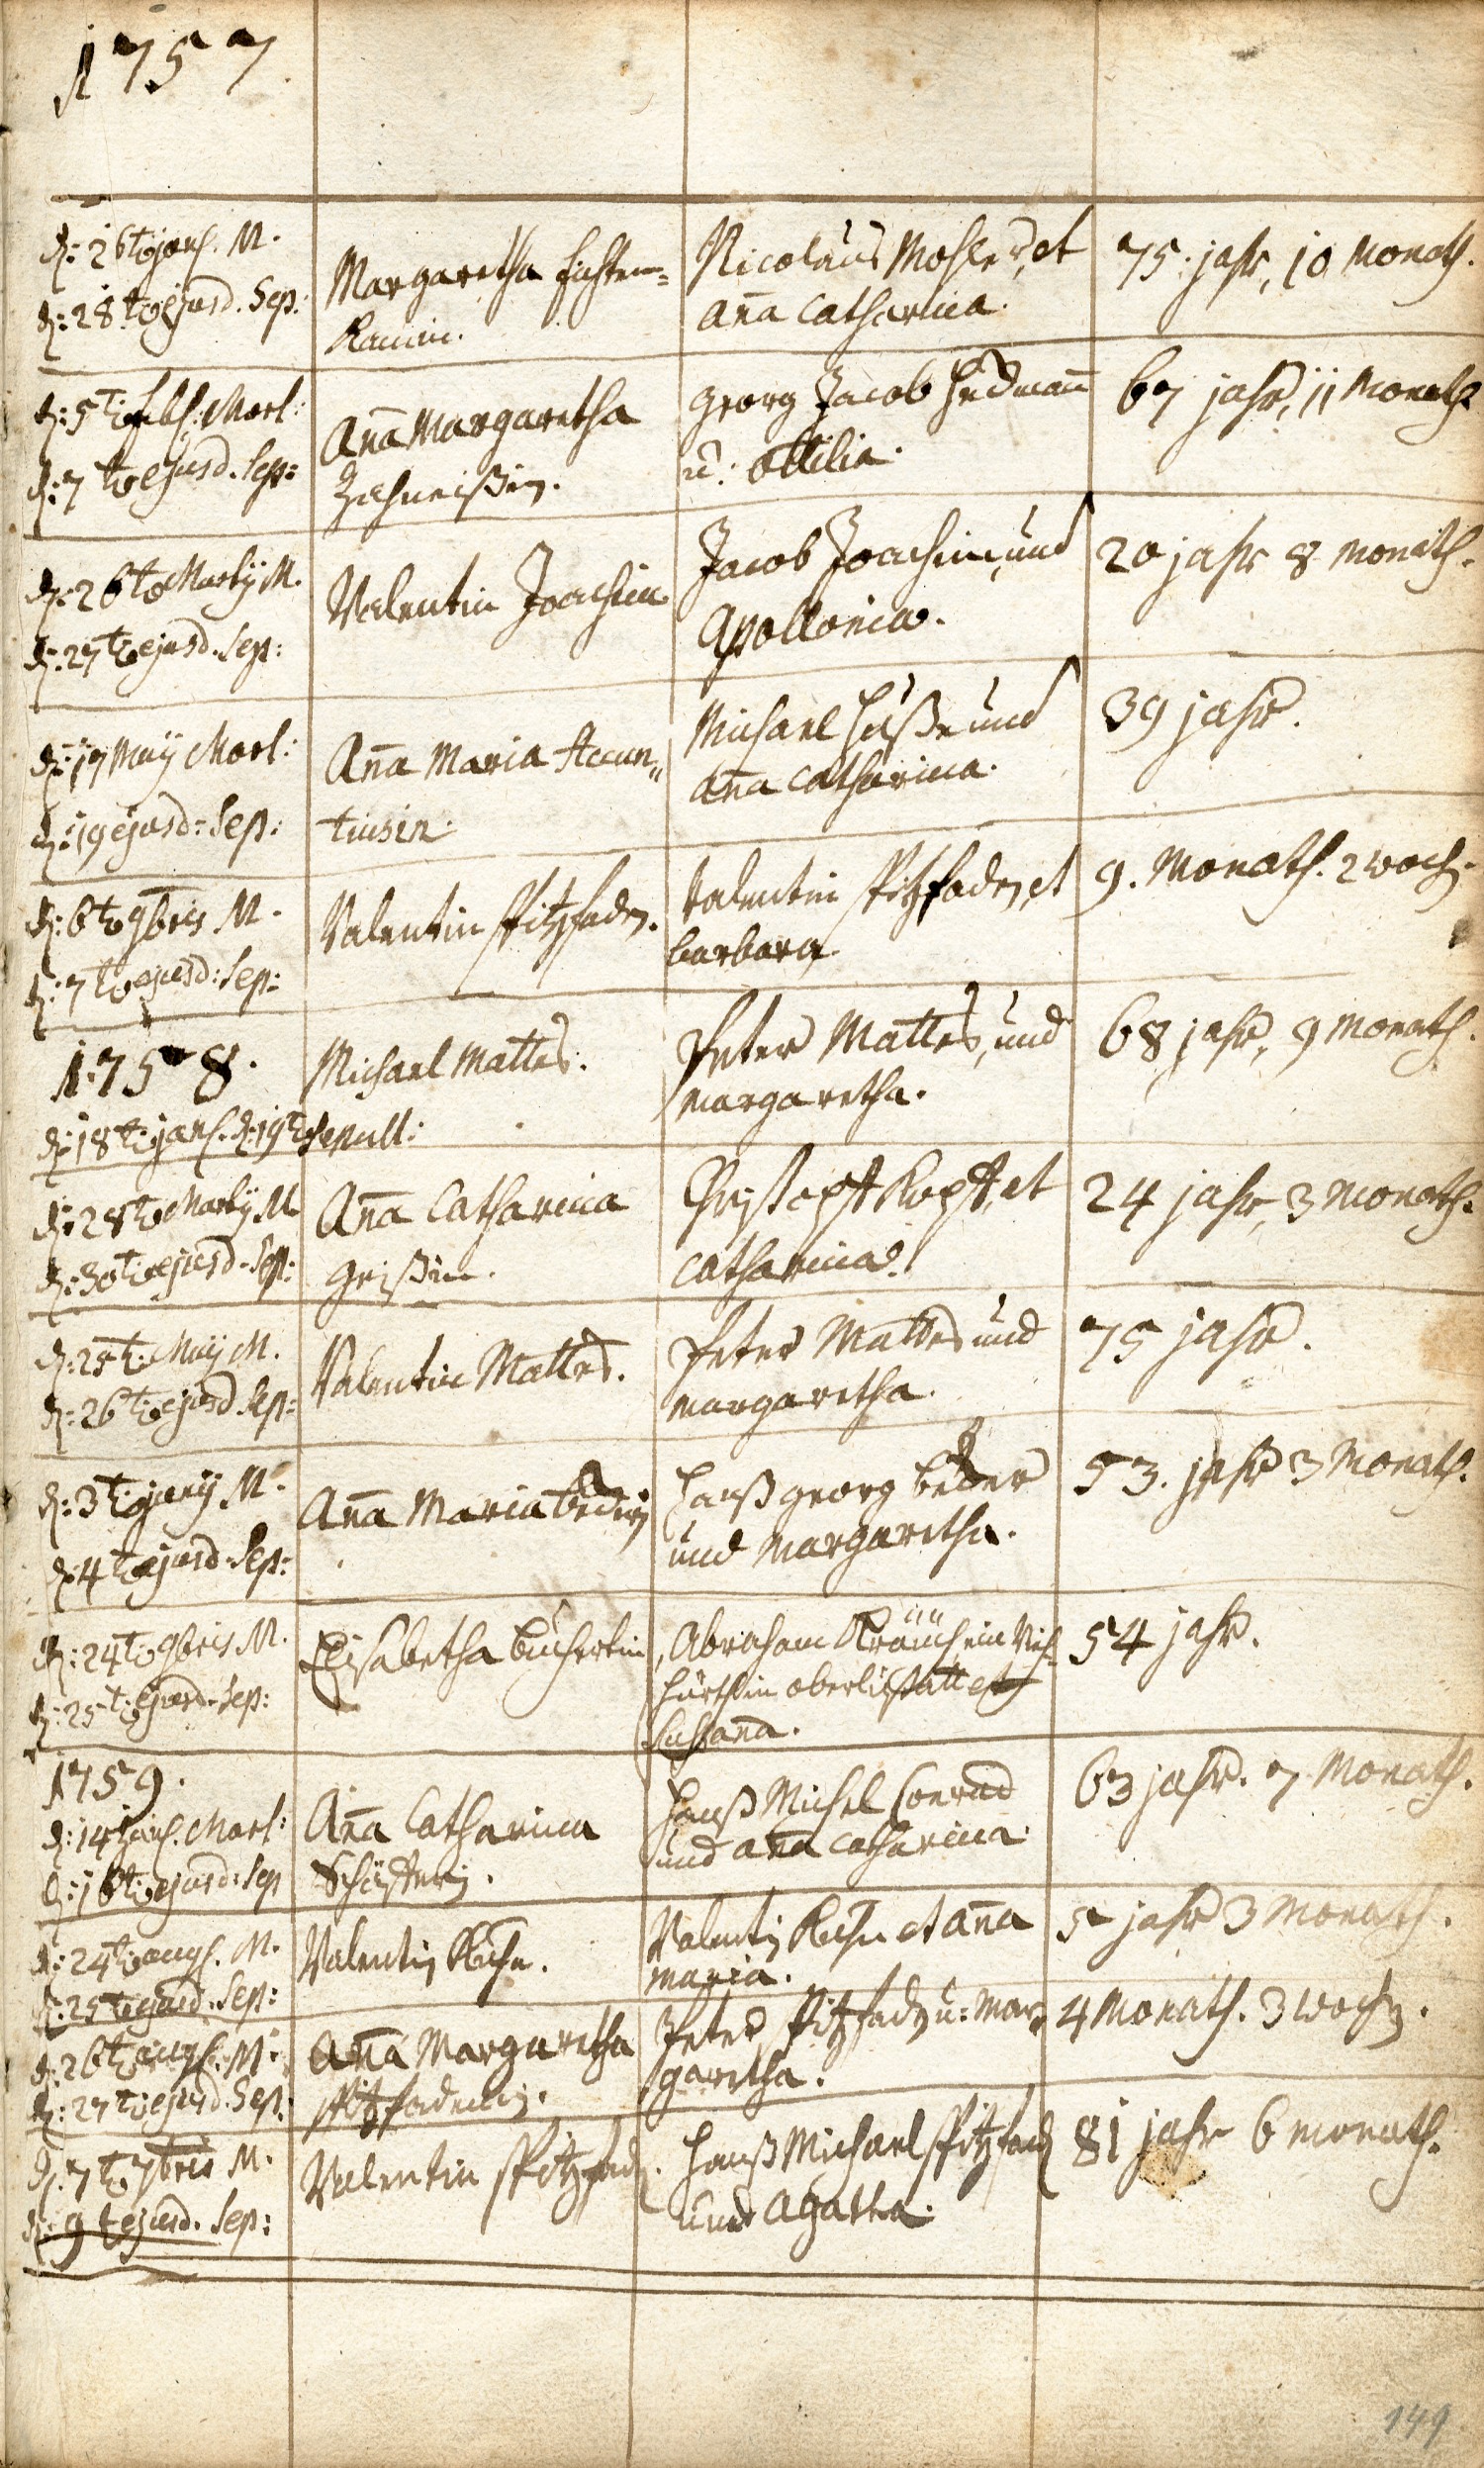 1757.
d: 26t. jan. M.
d: 28t. ejusd. Sep:
Margaretha
Nicolaus Mohler, et
Anna Catharina.
75. jahr, 10 Monath.
d: 5t. feb. Mort:
d: 7t. ejusd. Sep:
Anna Margaretha
Zahneißin.
Georg Jacob
u: Ottilia.
67 jahr, 11 Monath
d: 26t. Martij M.
d: 27t. ejusd. Sep:
Valentin Joachim
Jacob Joachim, und
Apollonia.
20 jahr 8 Monath.
d: 17 Maij Mort:
d: 19 ejusd: Sep:
Anna Maria Accun„
tiusin.
Michael und
Anna Catharina.
39 jahr.
d: 6t. 9bris M.
d: 7t. ejusd: Sep:
Valentin Pfitzfaden.
Valentin Pfitzfaden, et
barbara
9. Monath. 2 woch.
1758.
d: 18t. jan. d: 19t. Sepult:
Michael Mattes.
Peter Mattes, und
Margaretha.
68 jahr, 9 Monath.
d: 28t. Martij M
d: 30t. ejusd. Sep:
Anna Catharina
Grißin.
Christoph Kopf, et
Catharina.
24 jahr, 3 Monath.
d: 25t. Maij M.
d: 26t. ejusd. Sep:
Valentin Mattes.
Peter Mattes und
Margaretha.
75 jahr.
d: 3t. junij M.
d: 4t. ejusd. Sep:
Anna Maria
Hanß Georg
und Margaretha.
53. jahr 3 Monath.
d: 24t. 9bris M.
d: 25t. ejusd. Sep:
Elisabetha Buchertin
Abraham ein Vieh
hürth in oberlustatt et
Susanna.
54 jahr.
1759.
d: 14 jan. Mort:
d: 16t. ejusd: Sep
Anna Catharina
Schäfferin.
Hanß Michel Conrad
und Anna Catharina.
63 jahr. 7 Monath.
d: 24t. aug. M.
d: 25t. ejusd. Sep:
Valentin Kuhn.
Valentin Kuhn et Anna
Maria.
5 jahr 3 Monath.
d: 26t. aug. M.
d: 27t. ejusd. Sep:
Anna Margaretha
Pfitzfadenin.
Peter Pfitzfaden u: Mar„
garetha.
4 Monath. 3 wochen.
d: 7t. 7bris M.
d: 9t ejusd. Sep:
Valentin Pfitzfaden.
Hanß Michael Pfitzfaden
und Agatha.
81 jahr 6 monath.
149